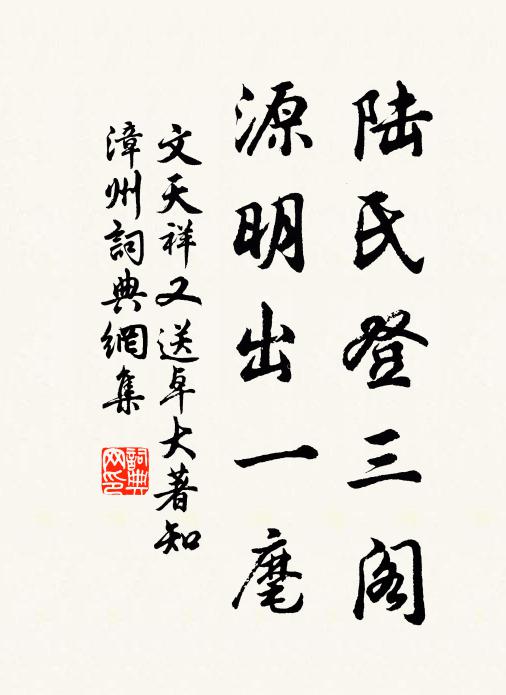 陆氏登三阁
源明出一麾
文天祥又送卓大著知
漳州詞典網集
詞典网印